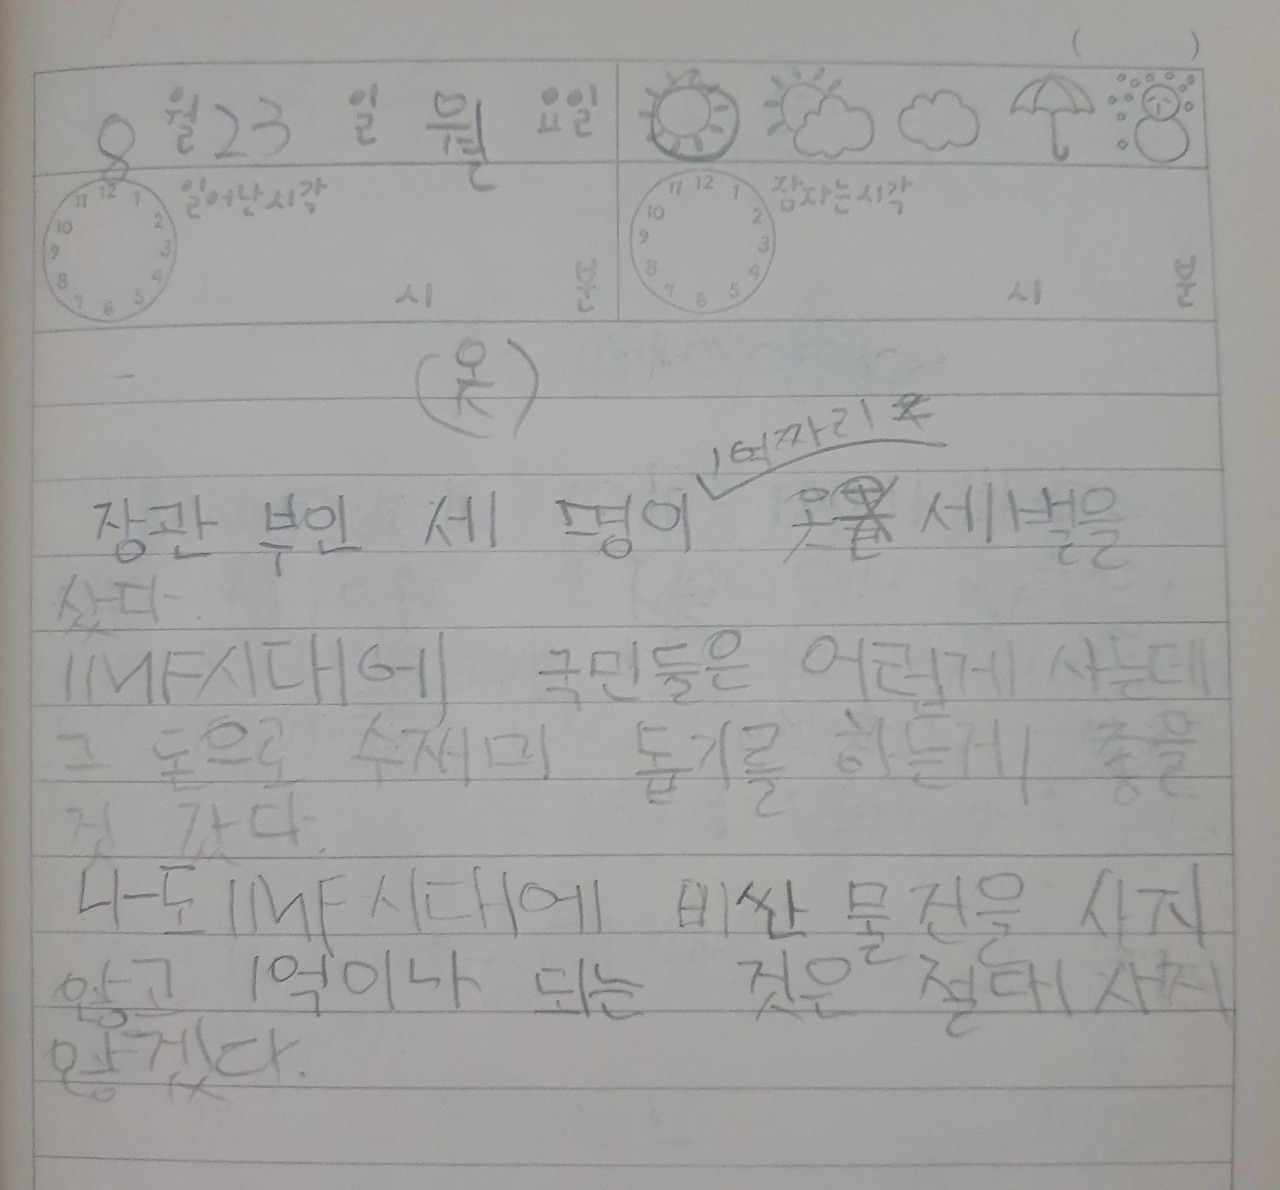 ( )
8 월 23 일 월 요일
12 1 2 3 4 5 6 7 8 9 10 11 일어난시각 시 분
12 1 2 3 4 5 6 7 8 9 10 11 잠자는시각 시 분
(옷)
1억짜리
장관 부인 세 명이 옷 세벌을
샀다.
IMF시대에 국민들은 어렵게 사는데
그 돈으로 수재미 돕기를 하는게 좋을
것 같다.
나도 IMF시대에 비싼 물건을 사지
않고 1억이나 되는 것은 절대 사지
않겠다.